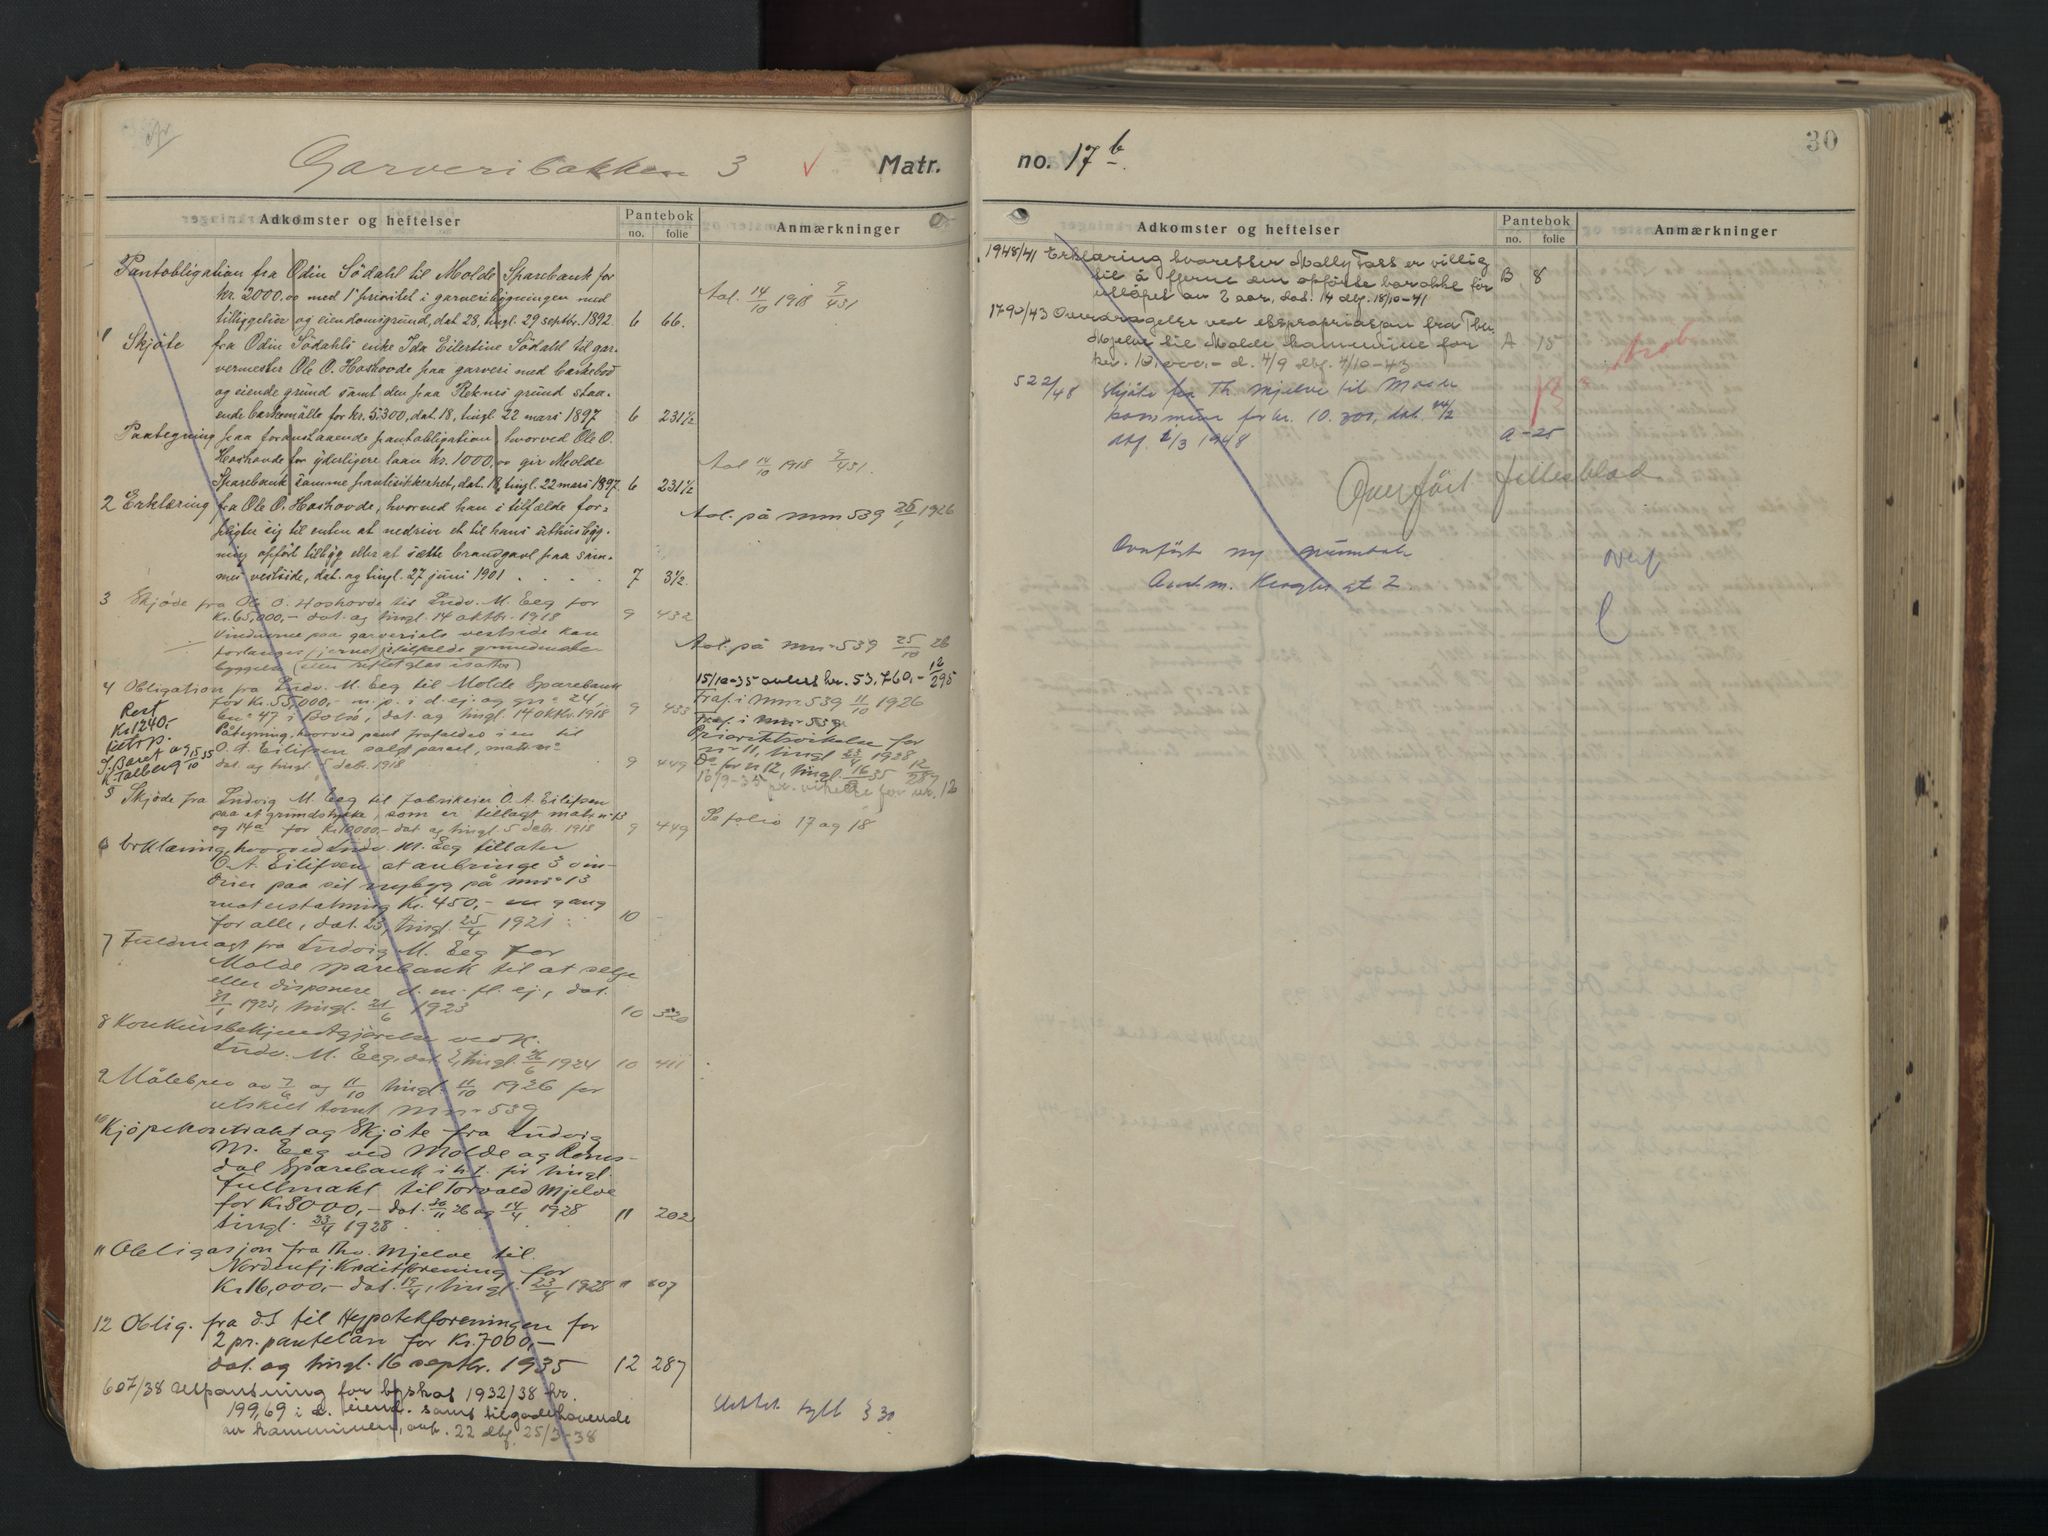 Garveribakken 3 Matr.
Adkomster og heftelser
Pantebok
no. folie
Anmærkninger
Pantobligation fra Odin Södahl til Molde Sparebank for
kr. 2000.00 med 1ste prioritet i garveribygningen med
tilliggelser og eiendomsgrund, dat 28, tingl. 29 septbr. 1892. 6 66.
Avl. 14/10 1918 9/431
1 Skjöte fra Odin Södahls enke Ida Eilertine Södahl til gar-
vermester Ole O. Hoshovde paa garveri med barkebod
og eiende grund samt den paa Reknes grund staa-
ende barkemölle for kr. 5.300, dat. 18, tingl. 22 mars 1897 6 231½
Paategning paa foranstaaende pantobligation, hvorved Ole O.
Hoshovde for yderligere laan kr. 1000.00 gir Molde
Sparebank samme pantesikkerhet, dat. 18, tingl. 22 mars 1897. 6 231½
Avl 14/10 1918 9/431.
2 Erklæring fra Ole O. Hoshovde, hvorved han i tilfælde for-
pligter sig til enten at nedrive et til hans uthusbyg-
ning opfört tilbyg eller at sætte brandgavl paa sam-
mes vestside, dat. og tingl. 27 juni 1901 7 3½.
Avl. på mnr 539 1926
3 Skjøde fra Ole O. Hoshovde til Ludv. M. Eeg for
Kr. 65,000,- dat. og tingl. 14 oktbr. 1918 9 432
Vinduerne paa garveriets vestside kan
forlanges fjernet i tilfælde grunden be
bygges (eller rutletglas isættes)
Avl. på mnr 539 25/10 26
4 Obligation fra Ludv. M. Eeg til Molde Sparebank
for Kr. 55,000,- m. p. i d. ej. og gnr 24,
bnr 47 i Bolsø, dat. og tingl. 14 oktbr. 1918 9 433
Påtegning, hvorved pant frafaldes i en til
O. A. Eilifsen solgt parcel, matr. nr
dat. og tingl. 5 debr. 1918 9 449
Rest
Kr 1240,-
15/10-35 avlest kr. 53,760,- 12/295
Fraf. i mnr 539 11/10 1926
Fraf. i mnr 539
Prioritetsvikelse for
nr 11, tingl 23/4 1928
Do for nr 12, tingl. 16/9 35 12/287
16/9-35 pr. vikelse for nr. 12
5 Skjøde fra Ludvig M. Eeg til fabrikeier O. A. Eilifsen
paa et grundstykke, som er tillagt matr. nr 13
og 14a for Kr. 10000,- dat. og tingl. 5 debr. 1918 9 449
Se folio 17 og 18
6 Erklæring, hvorved Ludv. M. Eeg tillater
O. A. Eilifsen at anbringe 3 vin-
duer paa sit nybyg på mnr 13
mot erstatning Kr. 450,- en gang
for alle, dat. 23, tingl. 25/4 1921 10 -
7 Fuldmagt fra Ludvig M. Eeg for
Molde sparebank til at selge
eller disponere d. m. fl. ej., dat.
1923, tingl. 21/6 1923 10 320
8 Konkursbekjendtgjørelse vedk.
Ludv. M. Eeg, dat. 2, tingl. 26/6 1924 10 411
9 Målebrev av 7/6 og 11/10 tingl. 11/10 1926 for
utskilt tomt mnr 539
10 Kjøpekontrakt og Skjøte fra Ludvig
M. Eeg ved Molde og Roms-
dal Sparebank i h. t. før tingl.
fullmakt til Torvald Mjelve
for Kr 8000,- dat. 30/11 26 og 14/4 1928 11 202
tingl. 23/4 1928
11 Obligasjon fra Thv. Mjelve til
Nordenfj. Kreditforening for
Kr. 16,000,- dat. 19/4, tingl. 23/4 1928 11 207
12 Oblig. fra d.s til Hypotekforeningen for
2 pr. pantelån for Kr. 7000,-
dat. og tingl. 16 septbr. 1935 12 287
607/38 Utpantning for byskat 1932/38 kr.
199,69 i d. eiend. samt tilgodehavende
av kommunen, avh. 22 dbf. 25/3-38
Slettet tgll § 30
no. 17 b.
30
Adkomster og heftelser
Pantebok
no. folie
Anmærkninger
1948/41 Erklæring hvoretter Molly Foss er villig
til å fjerne den opförte barakke før
utløpet av 2 aar, dat. 14 dbf. 18/10-41 B 8
1790/43 Overdragelse ved ekspropriasjon fra Thv.
Mjelve til Molde kommune for
kr. 10,000.- d. 4/9 dbf. 4/10-43 A 15
522/48 Skjøte fra Th Mjelve til Molde
kommune for kr. 10.200, dat. 24/2
dbf. 2/3 1948 A-25
Overført fellesblad
Overført ny grunnbok